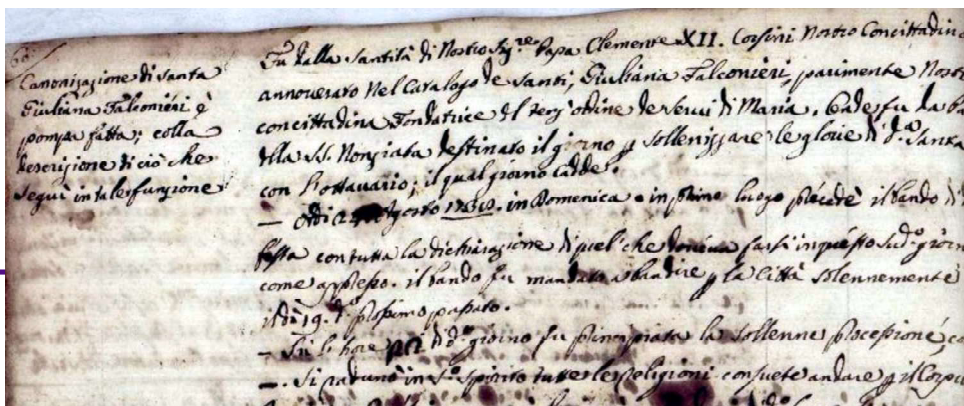 Canonizazione di Santa
Giuliana Falconieri è
pompa fatta; colla
descrizione di ciò che
seguì in tale funzione
Fu dalla Santità di Nostro Sig.re Papa Clemente XII. Corsini Nostro Concittadino
annoverato Nel Catalogo de Santi, Giuliana Falconieri, parimente Nostra
concittadina Fondatrice del terz'ordine de Servi di Maria. fu da
della SS. Nonziata destinato il giorno p sollenizzare le glorie di d.a Santa
con l'ottavario; il qual giorno cadde.
— Agosto 1738. in Domenica e in primo luogo precedè il bando di
festa con tutta la dichiarazione di quel che doveva farsi in questo sud.o giorno
come appresso. il bando fu mandato a bandire p la Città solennemente
il dì 19. d.o prossimo passato.
— Su le hore di d.o giorno fu principiata la sollenne processione,
— . Si radunò in S.o Spirito tutte le religioni consuete andare p il Corpus